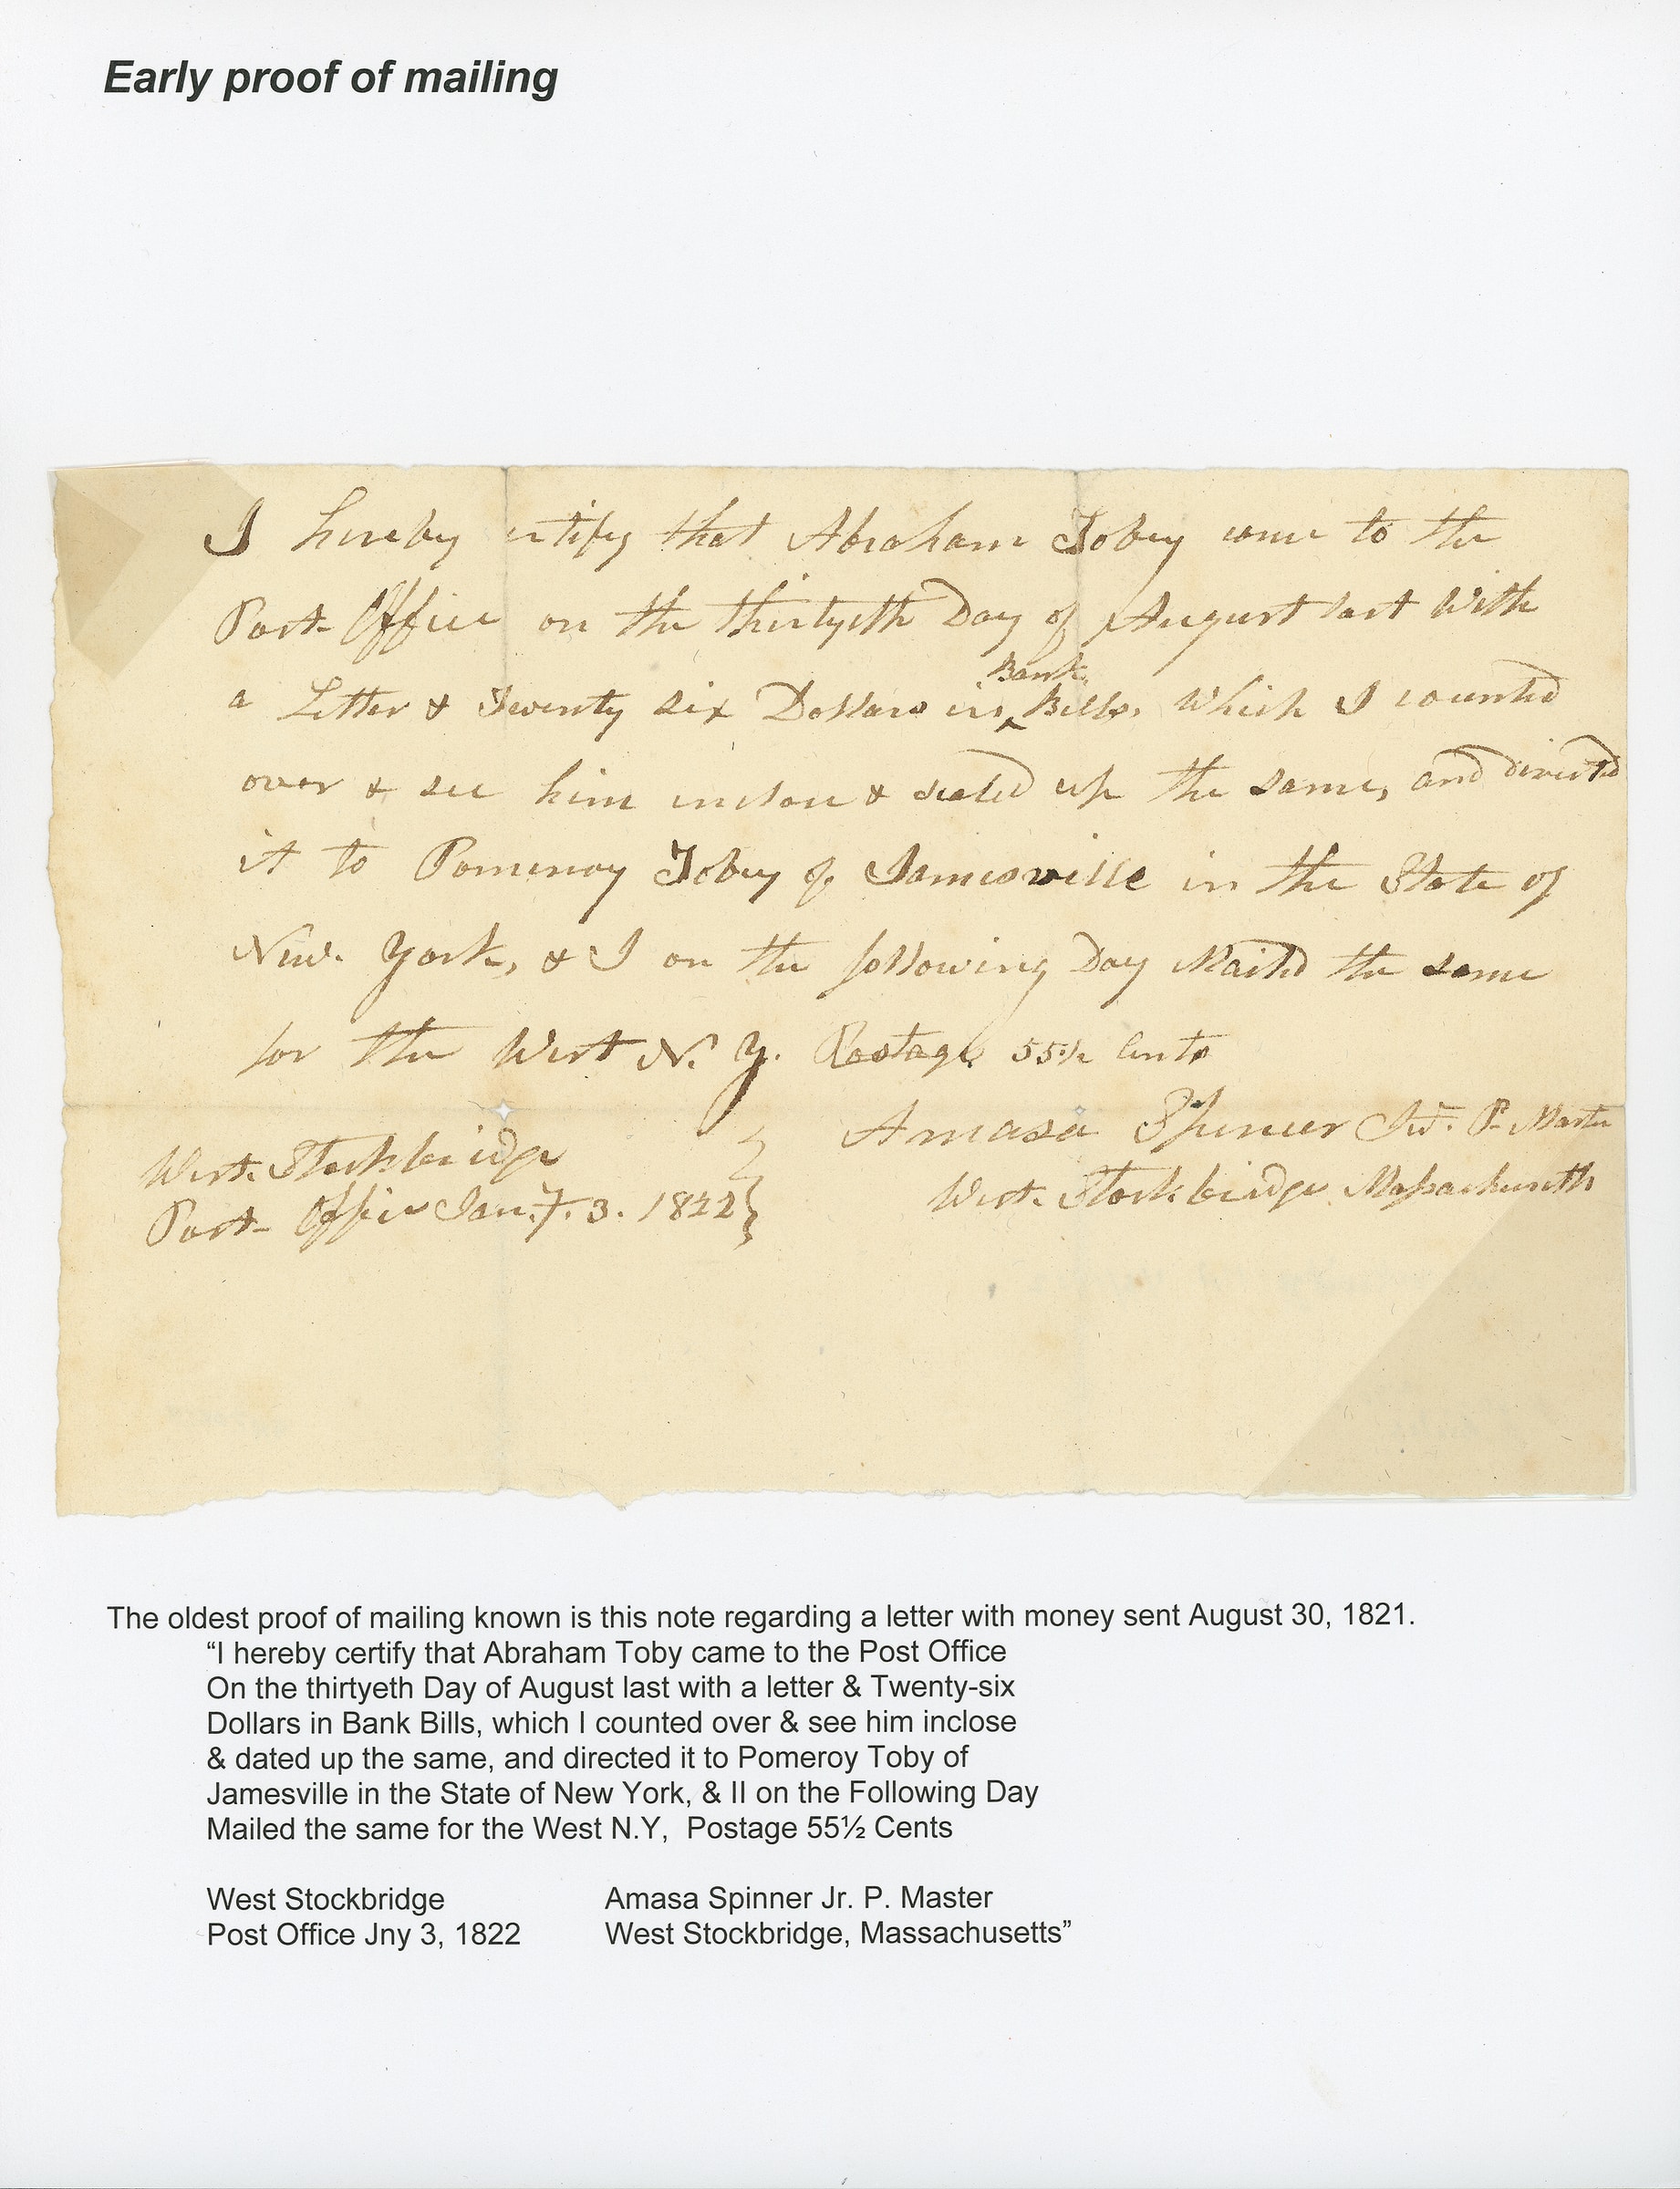 Early proof of mailing
I hereby certify that Abraham Tobey came to the
Post Office on the thirtyeth Day of August last With
a Letter & Twenty six Dollars in Bank Bills, Which I counted
over & see him inclose & sealed up the same, and directed
it to Pomeroy Tobey of Jamesville in the State of
New. York, & I on the following Day Mailed the same
for the West N. Y. Postage 55½ Cents
Amasa Spencer Jur. P. Master
West. Stockbridge
West. Stockbridge Massachusetts
Post- Office Jany. 3. 1822
The oldest proof of mailing known is this note regarding a letter with money sent August 30, 1821.
“I hereby certify that Abraham Toby came to the Post Office
On the thirtyeth Day of August last with a letter & Twenty-six
Dollars in Bank Bills, which I counted over & see him inclose
& dated up the same, and directed it to Pomeroy Toby of
Jamesville in the State of New York, & II on the Following Day
Mailed the same for the West N.Y, Postage 55½ Cents
West Stockbridge Amasa Spinner Jr. P. Master
Post Office Jny 3, 1822 West Stockbridge, Massachusetts”